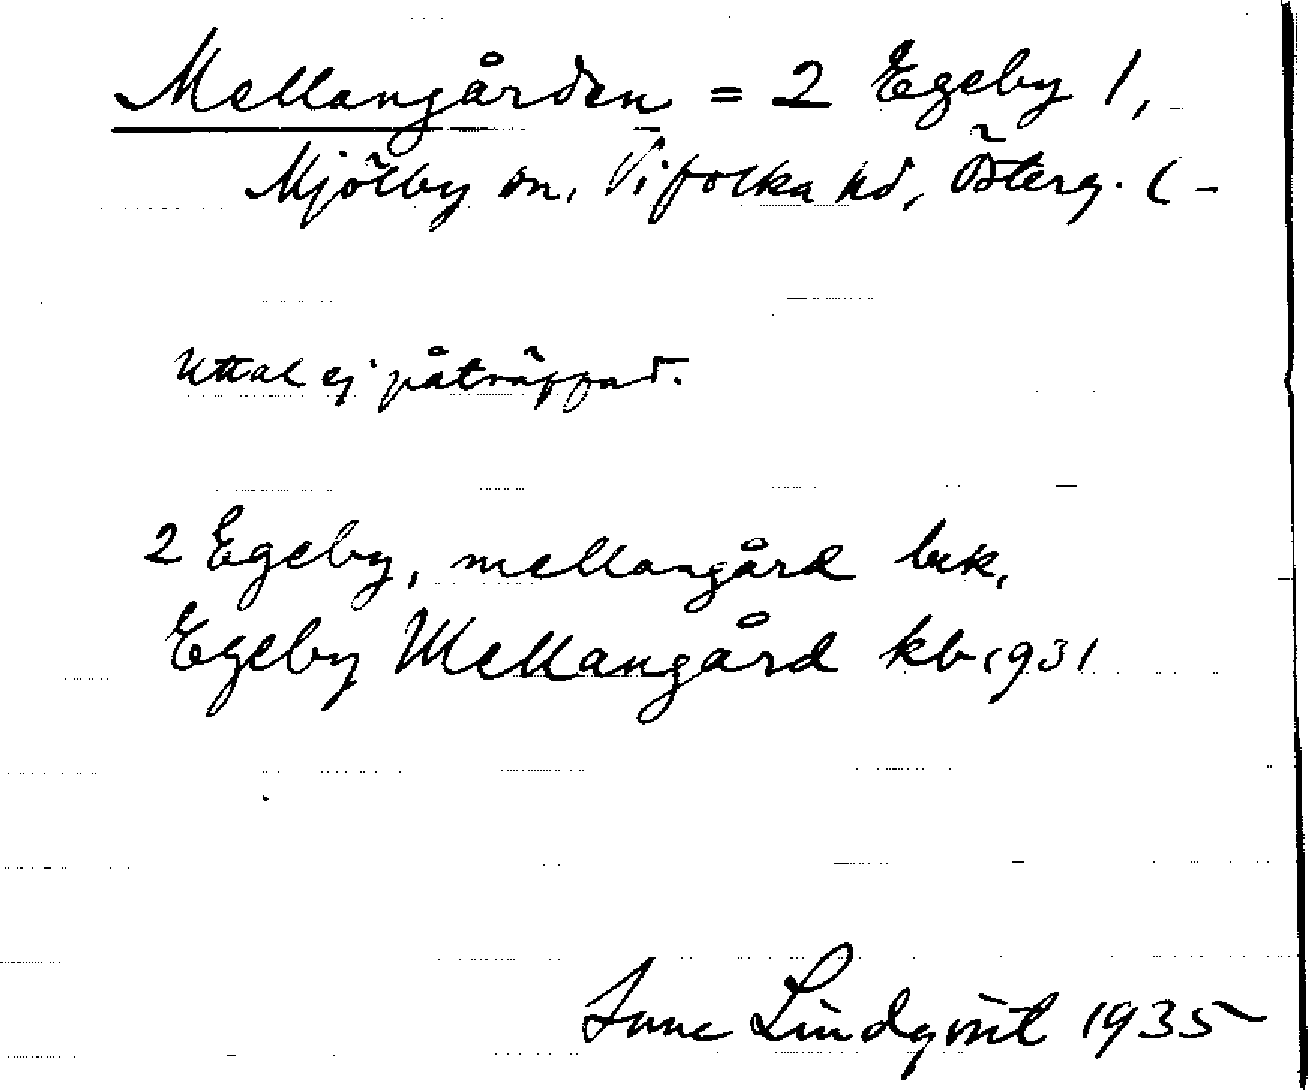 Mellangården = 2 Egeby 1,
Mjölby sn, Vifolka hd, Österg. l –
Uttal ej påträffad.
2 Egeby, mellangård bek.
Egeby Mellangård kb 1931
Sune Lindqvist 1935